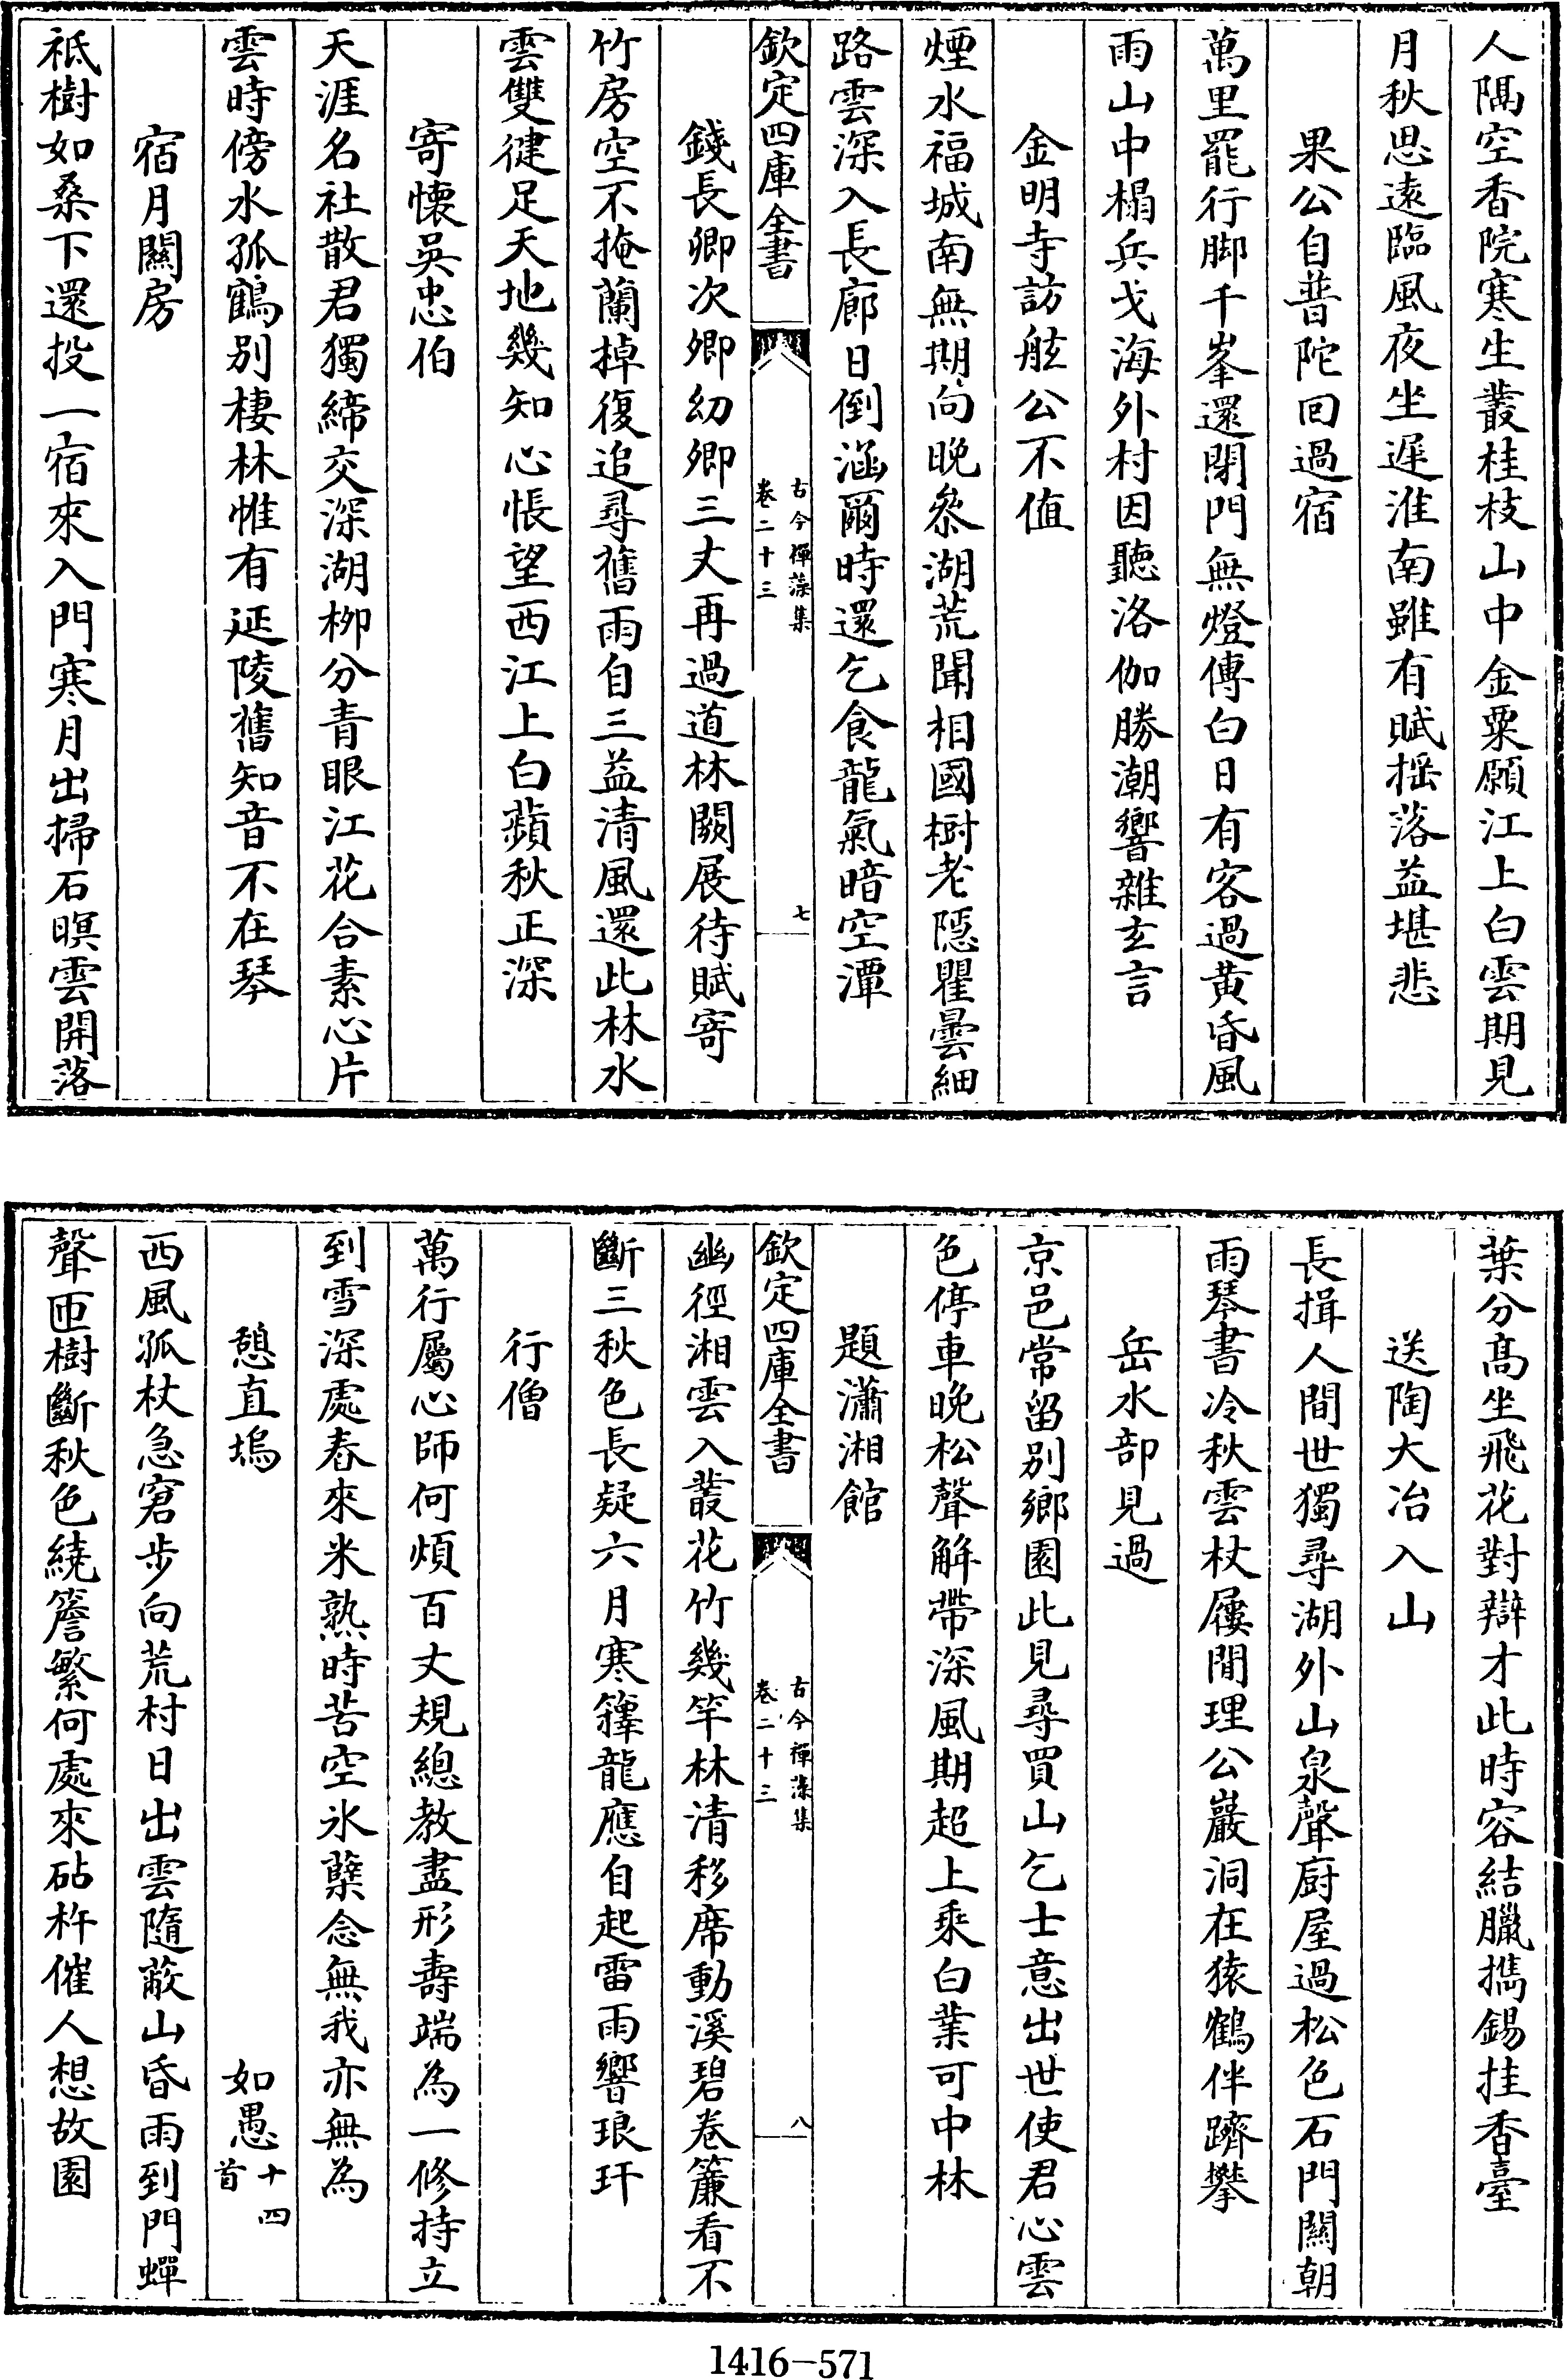 人隅空香院寒生叢桂枝山中金粟願江上白雲期見
月秋思遠臨風夜坐遲淮南雖有賦揺落益堪悲
果公自普陀回過宿
萬里罷行脚千峯還閉門無燈傳白日有客過黄昏風
雨山中榻兵戈海外村因聽洛伽勝潮響雜玄言
金明寺訪舷公不值
煙水福城南無期向晚叅湖荒聞相國樹老隠瞿曇細
路雲深入長廊日倒涵爾時還乞食龍氣暗空潭
欽定四庫全書
古今禪藻集
卷二十三
七
錢長卿次卿幼卿三丈再過道林闕展待賦寄
竹房空不掩蘭棹復追尋舊雨自三益清風還此林水
雲雙徤足天地幾知心悵望西江上白蘋秋正深
寄懷吳忠伯
天涯名社散君獨締交深湖柳分青眼江花合素心片
雲時傍水孤鶴别棲林惟有延陵舊知音不在琴
宿月關房
祇樹如桑下還投一宿來入門寒月出掃石暝雲開落
葉分髙坐飛花對辯才此時容結臘携錫挂香臺
送陶大冶入山
長揖人間世獨尋湖外山泉聲厨屋過松色石門闗朝
雨琴書冷秋雲杖屨閒理公巖洞在猿鶴伴躋攀
岳水部見過
京邑常留别鄉園此見尋買山乞士意出世使君心雲
色停車晚松聲解帶深風期超上乘白業可中林
題瀟湘館
欽定四庫全書
古今禪藻集
卷二十三
八
幽徑湘雲入叢花竹幾竿林清移席動溪碧卷簾看不
斷三秋色長疑六月寒籜龍應自起雷雨響琅玕
行僧
萬行屬心師何煩百丈規總教盡形壽端為一修持立
到雪深處舂來米熟時苦空氷蘖念無我亦無為
憩直塢
如愚十四首
西風孤杖急窘步向荒村日出雲隨蔽山昏雨到門蟬
聲匝樹斷秋色繞簷繁何處來砧杵催人想故園
1416—571